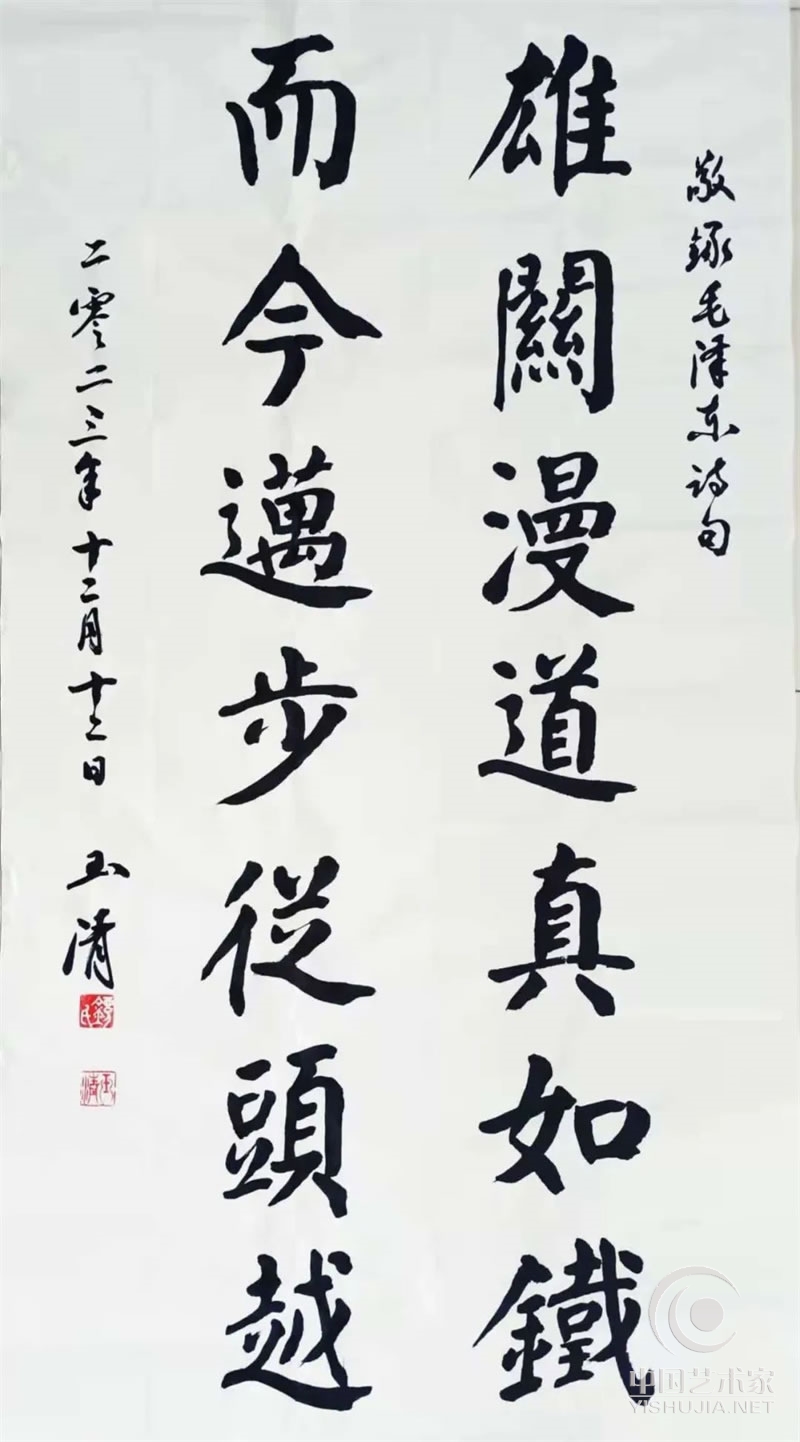 敬錄毛泽东诗句
雄關漫道真如鐵
而今邁步從頭越
二零二三年十二月十二日 玉清
玉清
中国艺术家
YISHUJIA.NET